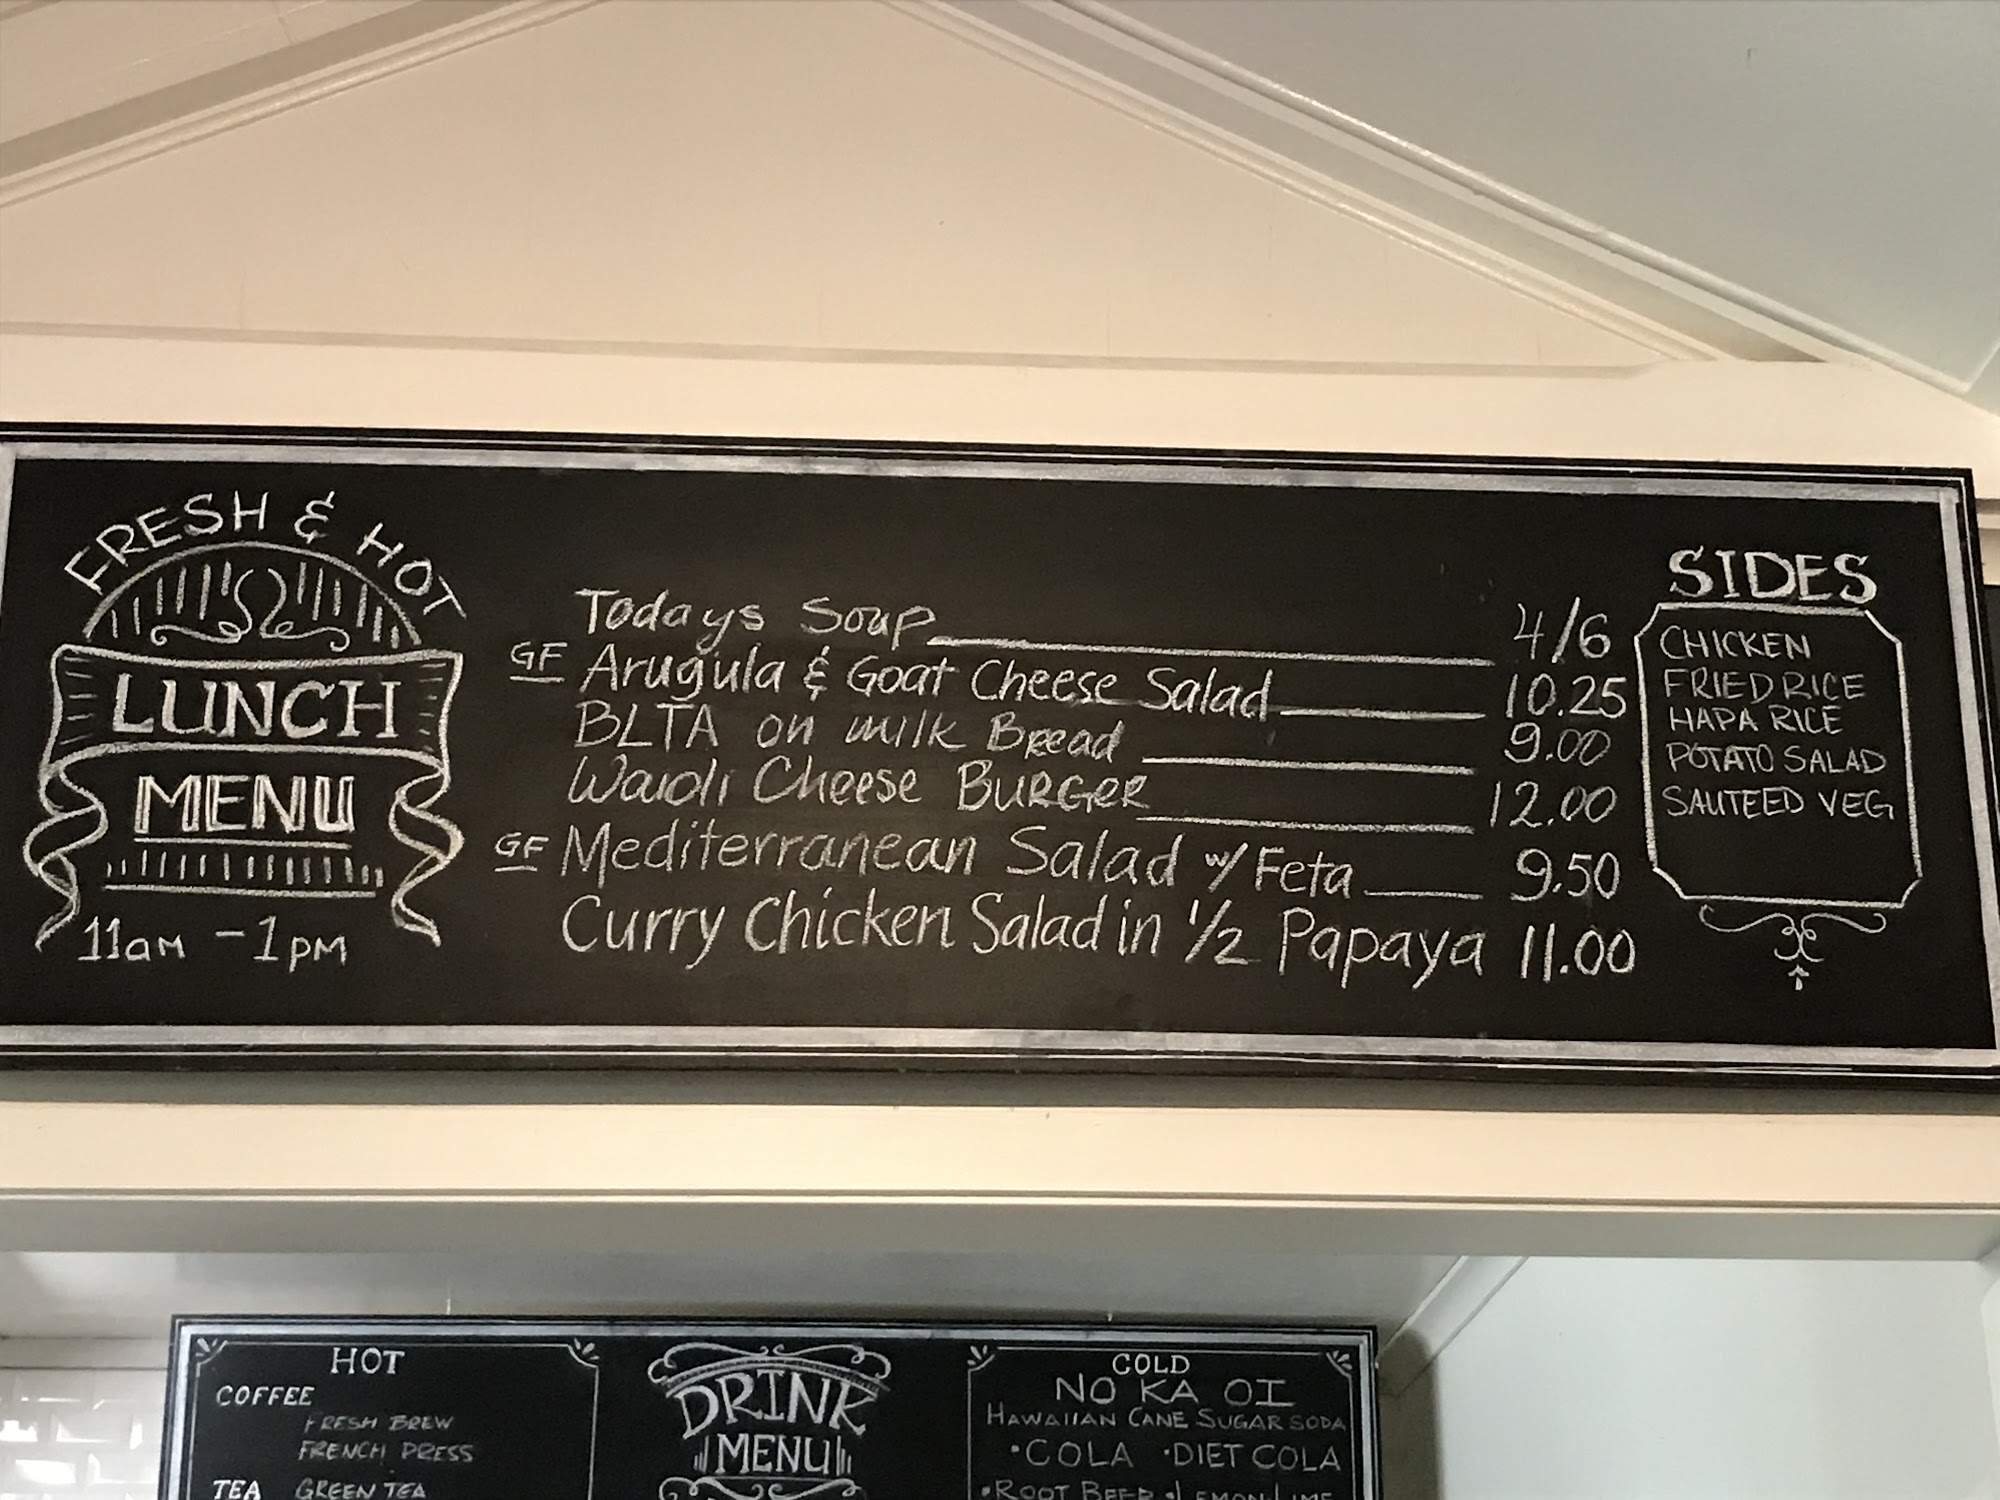 FRESH & HOT
LUNCH
MENU
11AM - 1PM
Todays Soup 4/6
GF Arugula & Goat Cheese Salad 10.25
BLTA on milk Bread 9.00
Waioli Cheese BURGER 12.00
GF Mediterranean Salad w/ Feta 9.50
Curry Chicken Salad in 1/2 Papaya 11.00
SIDES
CHICKEN
FRIED RICE
HAPA RICE
POTATO SALAD
SAUTEED VEG
HOT
COFFEE
FRESH BREW
FRENCH PRESS
TEA GREEN TEA
DRINK
MENU
COLD
NO KA OI
HAWAIIAN CANE SUGAR SODA
•COLA •DIET COLA
•ROOT BEER •LEMON LIME